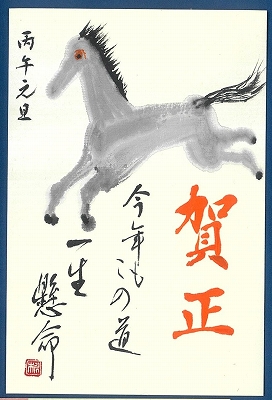 賀正
丙午元旦
今年もこの道
一生
懸命